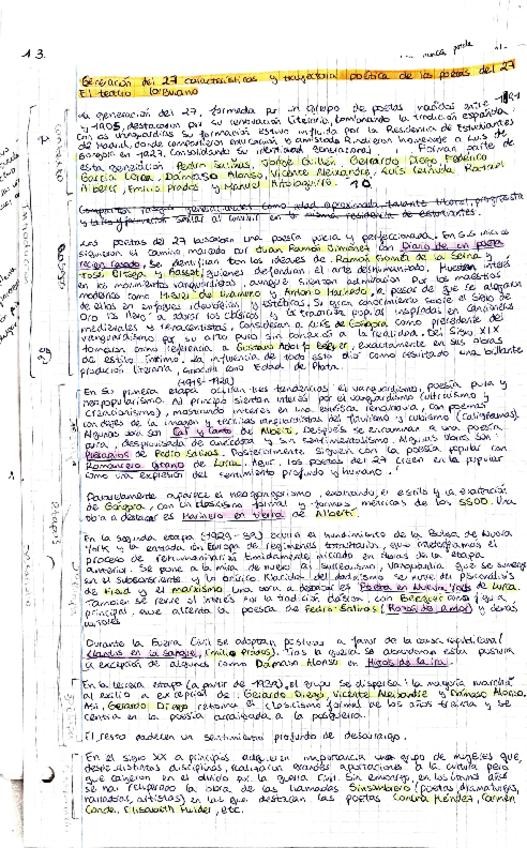 13.
Generación del 27 características y trayectoria poética de los poetas del 27
El teatro lorquiano
La generación del 27, formada por un grupo de poetas nacidos entre 1891
y 1905, destacaron por su renovación literaria, combinando la tradición española
con las vanguardias. Su formación estuvo influida por la Residencia de Estudiantes
de Madrid, donde compartieron educación y amistad. Rindieron homenaje a Luis de
Góngora en 1927, consolidando su identidad generacional. Forman parte de
esta generación Pedro Salinas, Jorge Guillén, Gerardo Diego, Federico
García Lorca, Dámaso Alonso, Vicente Aleixandre, Luis Cernuda, Rafael
Alberti, Emilio Prados y Manuel Altolaguirre. 10
Comparten rasgos generacionales como edad aproximada, talante liberal, progresista
y la formación similar al convivir en la misma residencia de estudiantes.
Los poetas del 27 buscaban una poesía pura y perfeccionada. En sus inicios
siguieron el camino marcado por Juan Ramón Jiménez con Diario de un poeta
recién casado, se identifican con los ideales de Ramón Gómez de la Serna y
Ortega y Gasset, quienes defendían el arte deshumanizado. Muestran interés
en los movimientos vanguardistas, aunque sienten admiración por los maestros
modernos como Miguel de Unamuno y Antonio Machado, a pesar de que se alejaron
de ellos en enfoques ideológicos y estéticos. Su gran conocimiento sobre el Siglo de
Oro les llevó a adorar los clásicos y la tradición popular inspirados en canciones
medievales y renacentistas. Consideran a Luis de Góngora como precedente del
vanguardismo por su arte puro sin conexión a la realidad. Del siglo XIX
tomaron como referencia a Gustavo Adolfo Bécquer, exactamente en sus obras
de estilo íntimo. La influencia de todo esto dio como resultado una brillante
produción literaria, conocida como Edad de Plata.
(1918-1928)
En su primera etapa ocurren tres tendencias: el vanguardismo, poesía pura y
neopopularismo. Al principio sienten interés por el vanguardismo (ultraísmo y
creacionismo), mostrando interés en una estética renovadora, con poemas
Algunas obra son Cal y Canto de Alberti. Después se encaminan a una poesía
pura, despojada de anécdotas y sin sentimentalismo. Algunas obras son:
Presagios de Pedro Salinas. Posteriormente siguen con la poesía popular con
Romancero Gitano de Lorca. Aquí, los poetas del 27 creen en lo popular
como una expresión del sentimiento profundo y humano.
Paralelamente aparece el neogongorismo, exaltando el estilo y la
de Góngora, con un clasicismo formal y formas métricas de los SSOO. Una
obra a destacar es Marinero en tierra de Alberti.
En la segunda etapa (1929-39) ocurre el hundimiento de la Bolsa de Nueva
York y la entrada en Europa de regímenes totalitarios,
proceso de rehumanización tímidamente iniciado en obras de la etapa
anterior. Se pone a la mira de nuevo al surrealismo, vanguardia que se sumerge
en el subconsciente y lo onírico. Nacido del dadaísmo se nutre del psicoanálisis
de Freud y el marxismo. Una obra a destacar es Poeta en Nueva York de Lorca.
También se revive el interés por la tradición clásica, con Bécquer como figura
principal, que alienta la poesía de Pedro Salinas (Razón de amor) y demás
autores.
Durante la Guerra Civil se adoptan posturas a favor de la causa republicana
(Llanto en la sangre, Emilio Prados). Tras la guerra se abandonan esta postura
a excepción de algunos como Dámaso Alonso en Hijos de la ira.
En la tercera etapa (a partir de 1939), el grupo se dispersa: la mayoría marchó
al exilio a excepción de: Gerardo Diego, Vicente Aleixandre y Dámaso Alonso.
Así, Gerardo Diego retoma el clasicismo formal de los años treinta y se
centra en la poesía arraigada a la posguerra.
El resto padecen un sentimiento profundo de desarraigo.
En el siglo XX a principios adquieren importancia una grupo de mujeres que,
desde distintas disciplinas, realizaron grandes aportaciones a la cultura pero
que cayeron en el olvido por la guerra civil. Sin embargo, en los últimos años
se ha recuperado la obra de las llamadas Sinsombrero (poetas, dramaturgas,
narradoras, artistas) en las que destacan las poetas Concha Méndez, Carmen
Conde, Elisabeth Mulder, etc.